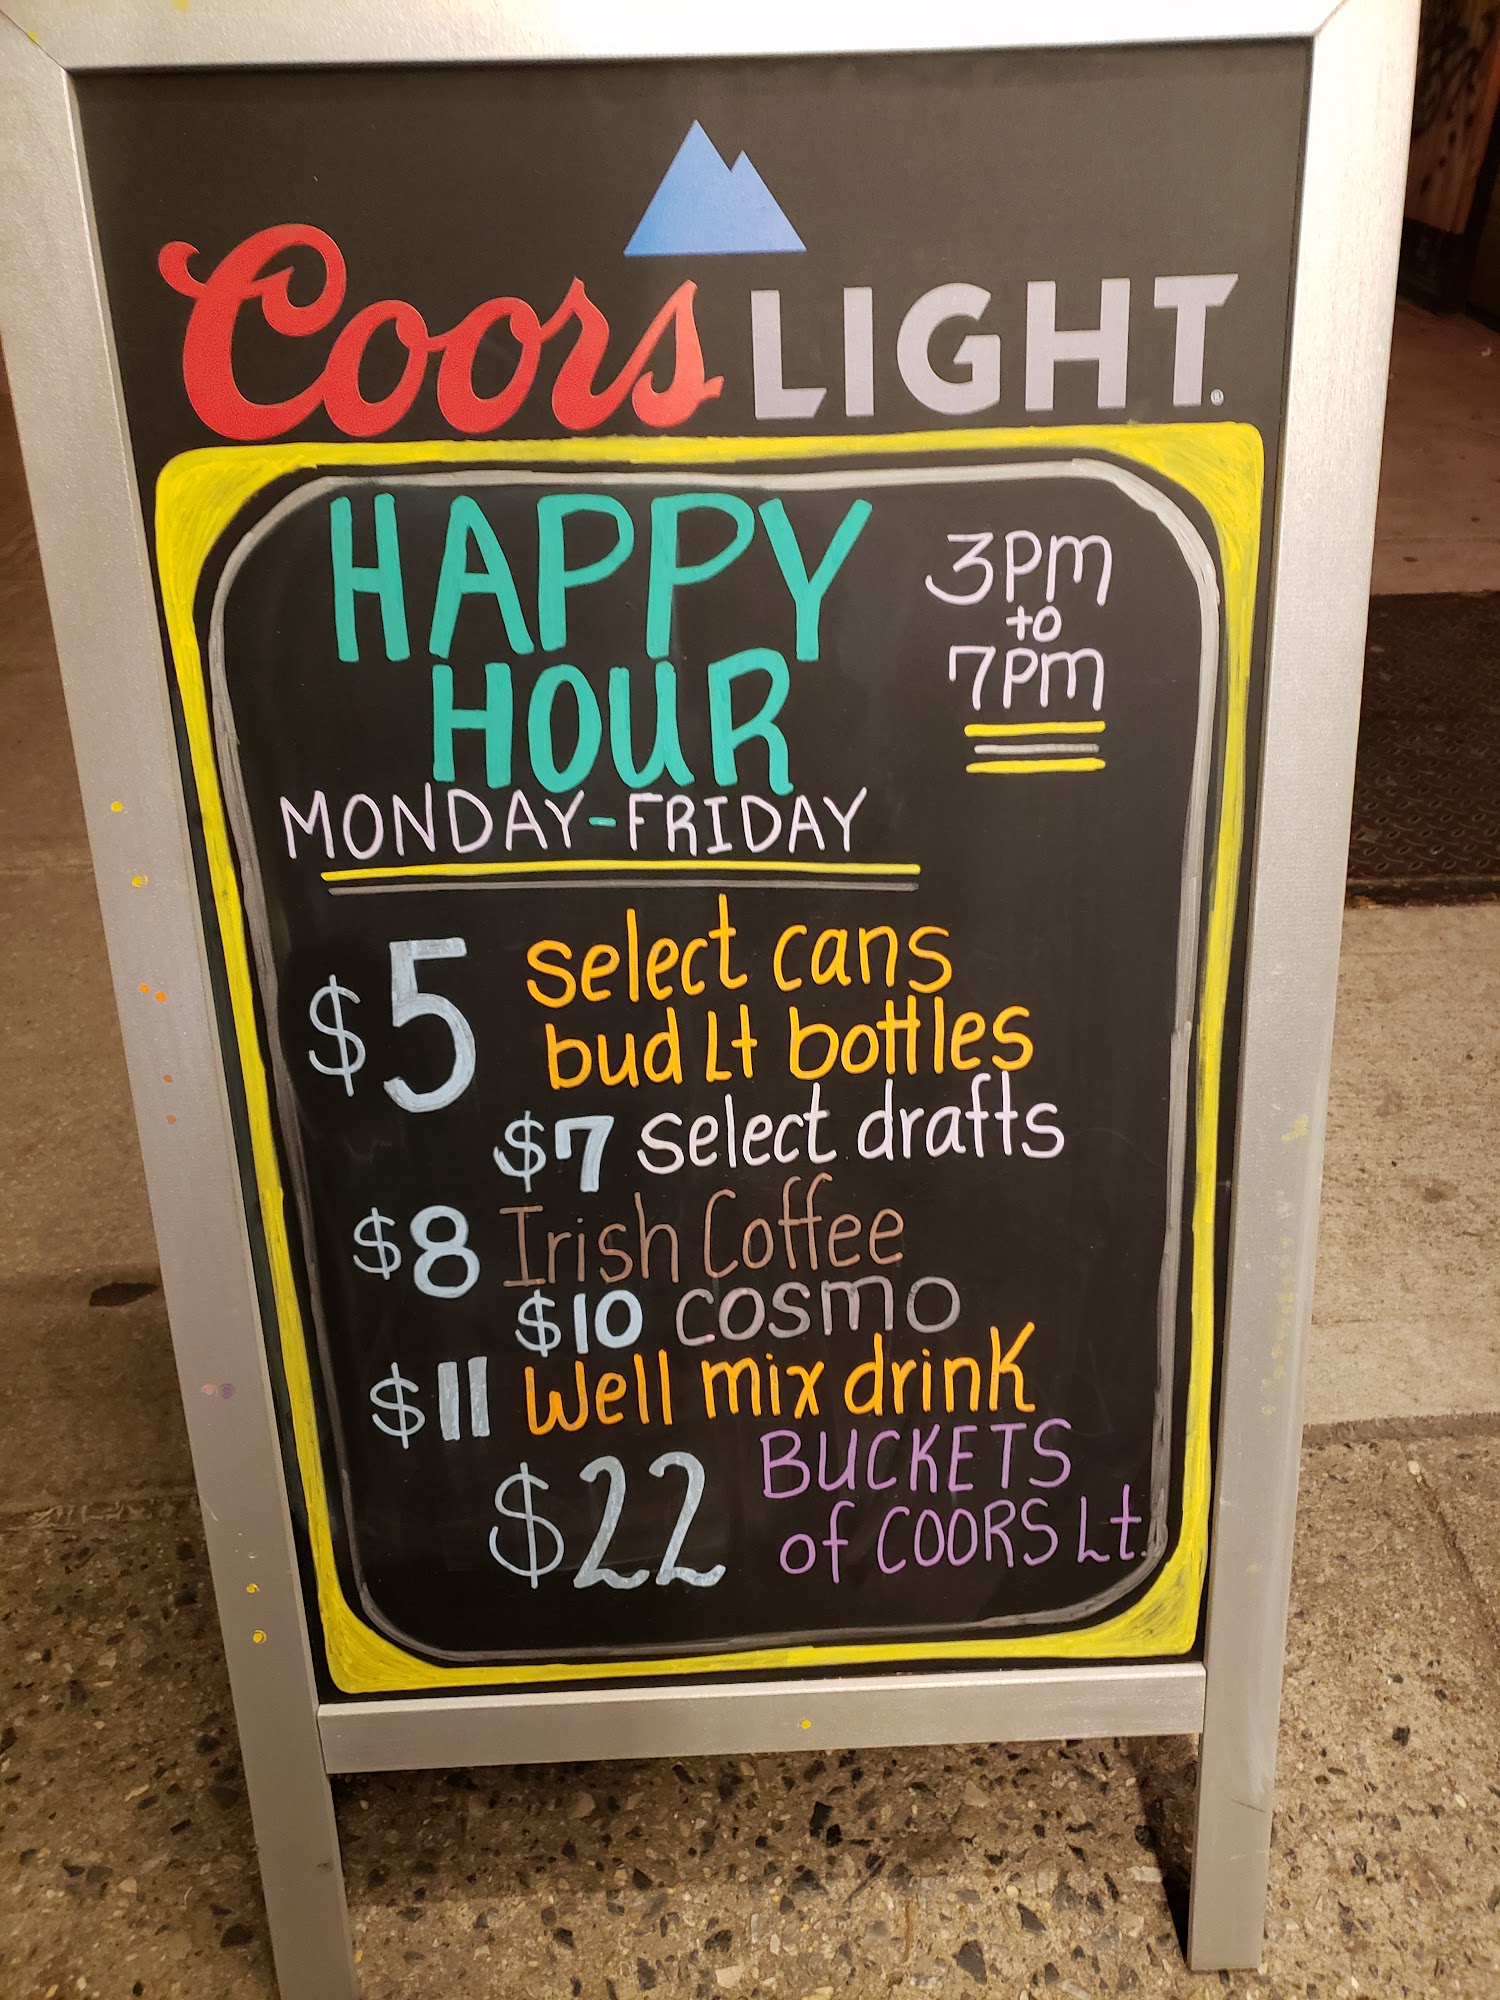 Coors LIGHT®
HAPPY
HOUR
3PM
to
7PM
MONDAY-FRIDAY
$5 select cans
bud Lt bottles
$7 select drafts
$8 Irish Coffee
$10 COSMO
$11 Well mix drink
$22 BUCKETS
of COORS Lt.